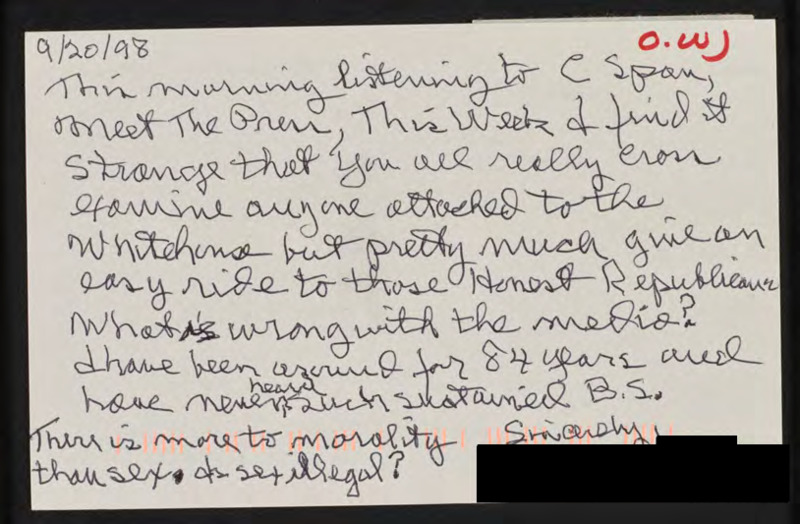 9/20/98 O.W)
This morning listening to C Span,
Meet The Press, This Week I find it
strange that you all really cross
examine anyone attached to the
Whitehouse but pretty much give an
easy ride to those Honest Republicans
What is wrong with the media?
I have been around for 84 years and
have never heard such sustained B.S.
There is more to morality Sincerely
than sex. Is sex illegal?